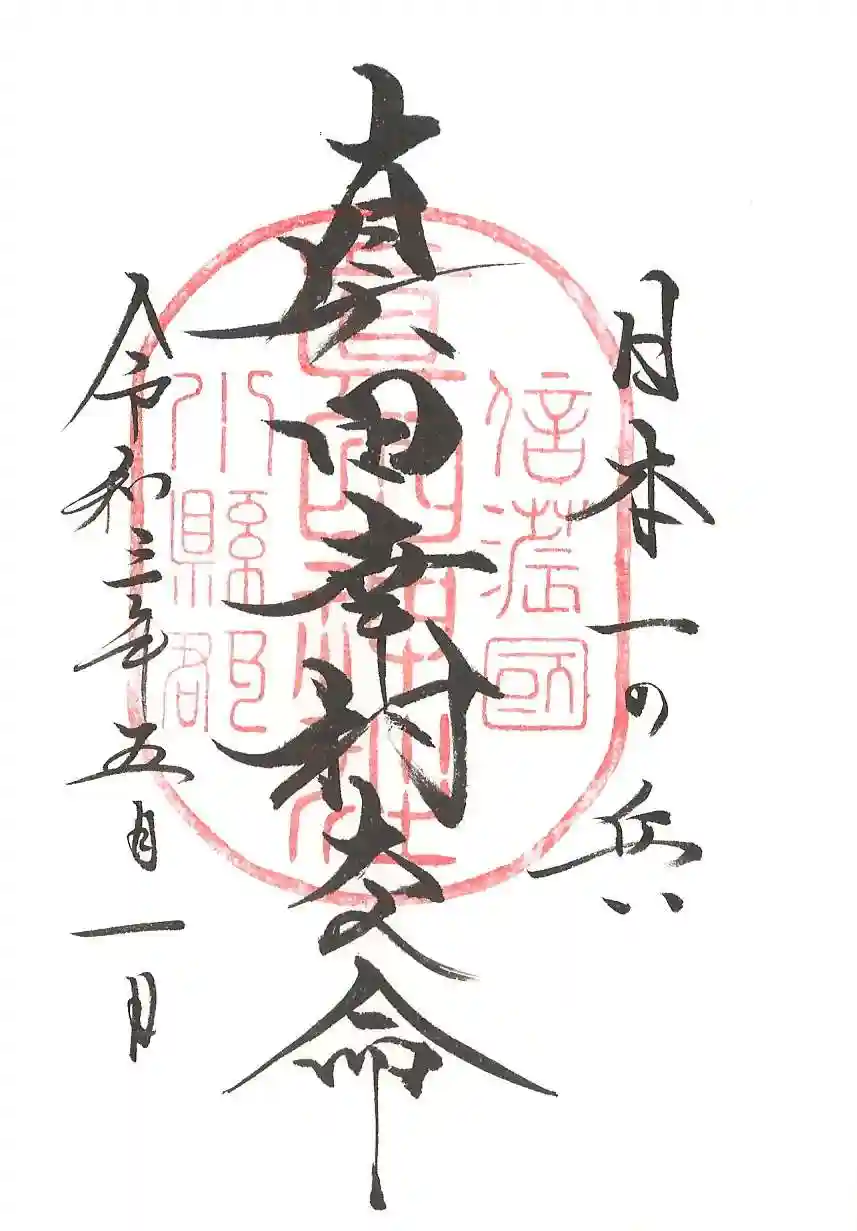 日本一の兵
真田幸村命
令和三年五月一日
信濃國
眞田神社
小縣郡